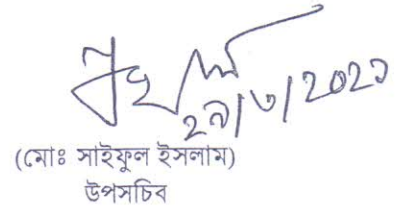 ২৯/৩/২০২১
(মোঃ সাইফুল ইসলাম)
উপসচিব